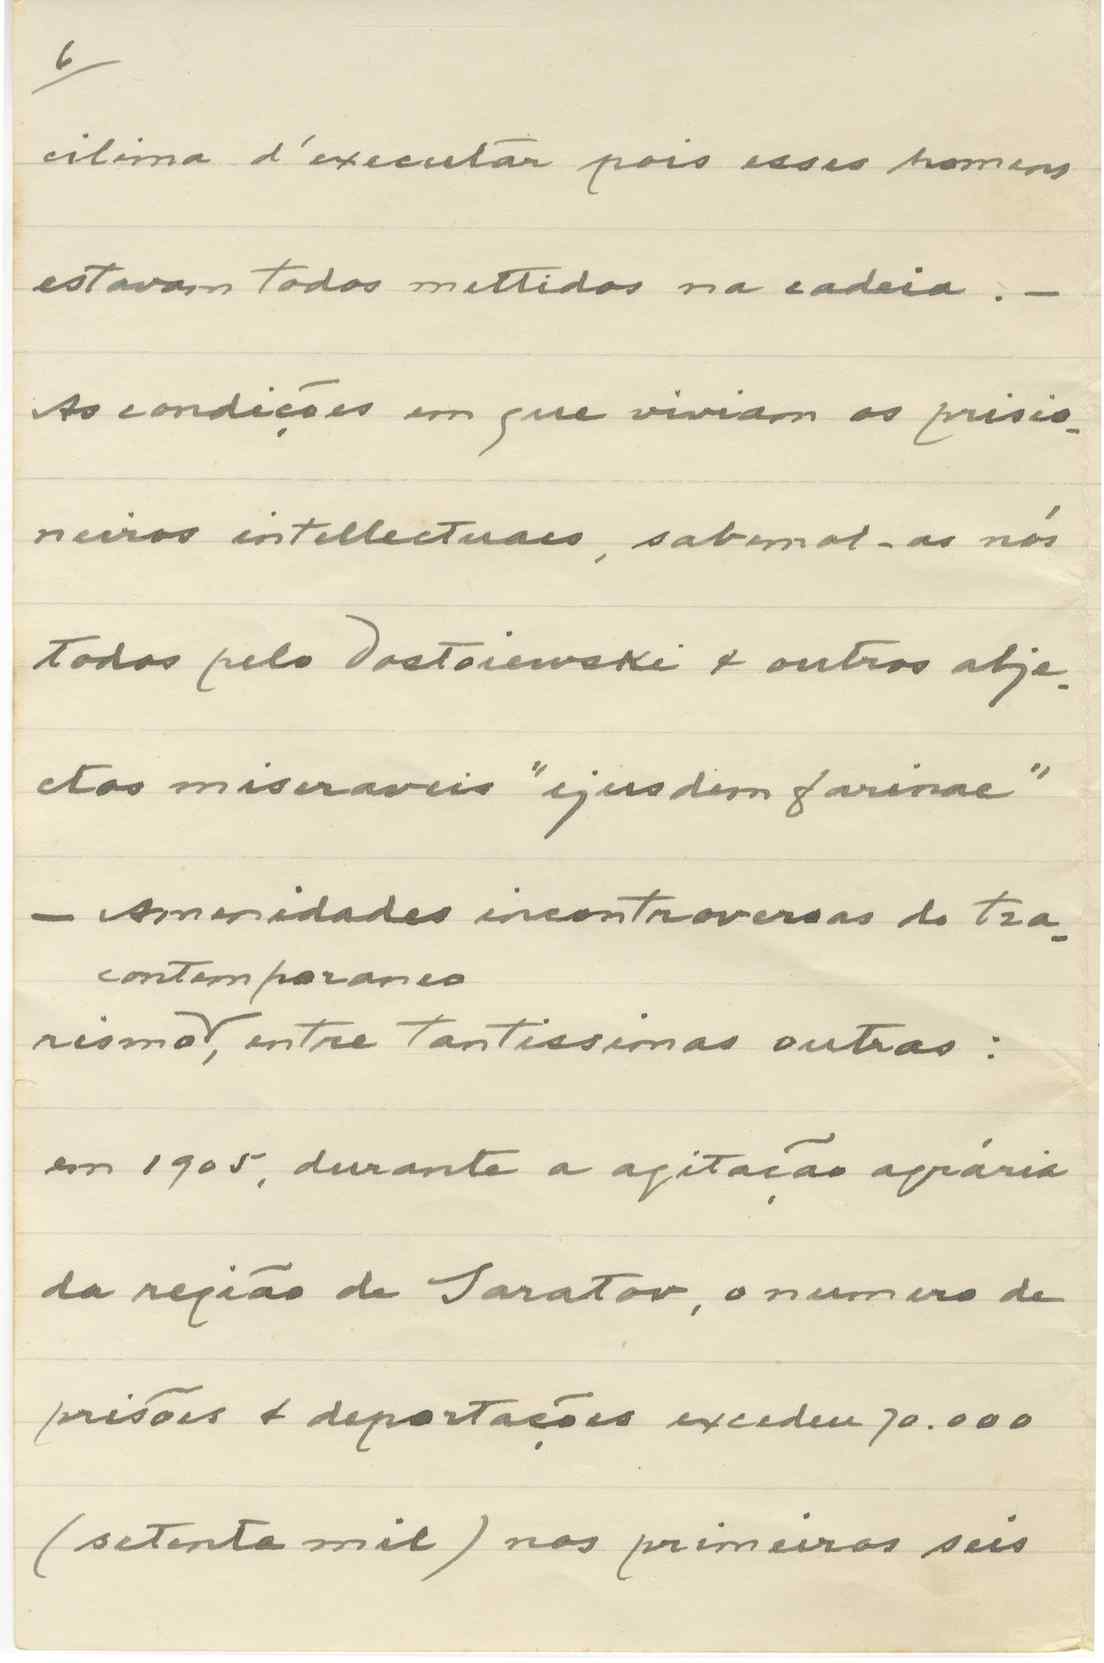 6
cilima d'executar pois esses homens
estavam todos mettidos na cadeia . —
As condições em que viviam os prisio-
neiros intellectuaes, sabemol-as nós
todos pelo Dostoiewski & outros abje-
ctos miseraveis "ejusdem farinae"
— Amenidades incontroversas do tza-
contemporaneo
rismo, entre tantissimas outras :
em 1905, durante a agitação agrária
da região de Saratov, o numero de
prisões & deportações excedeu 70.000
(setenta mil) nos primeiros seis